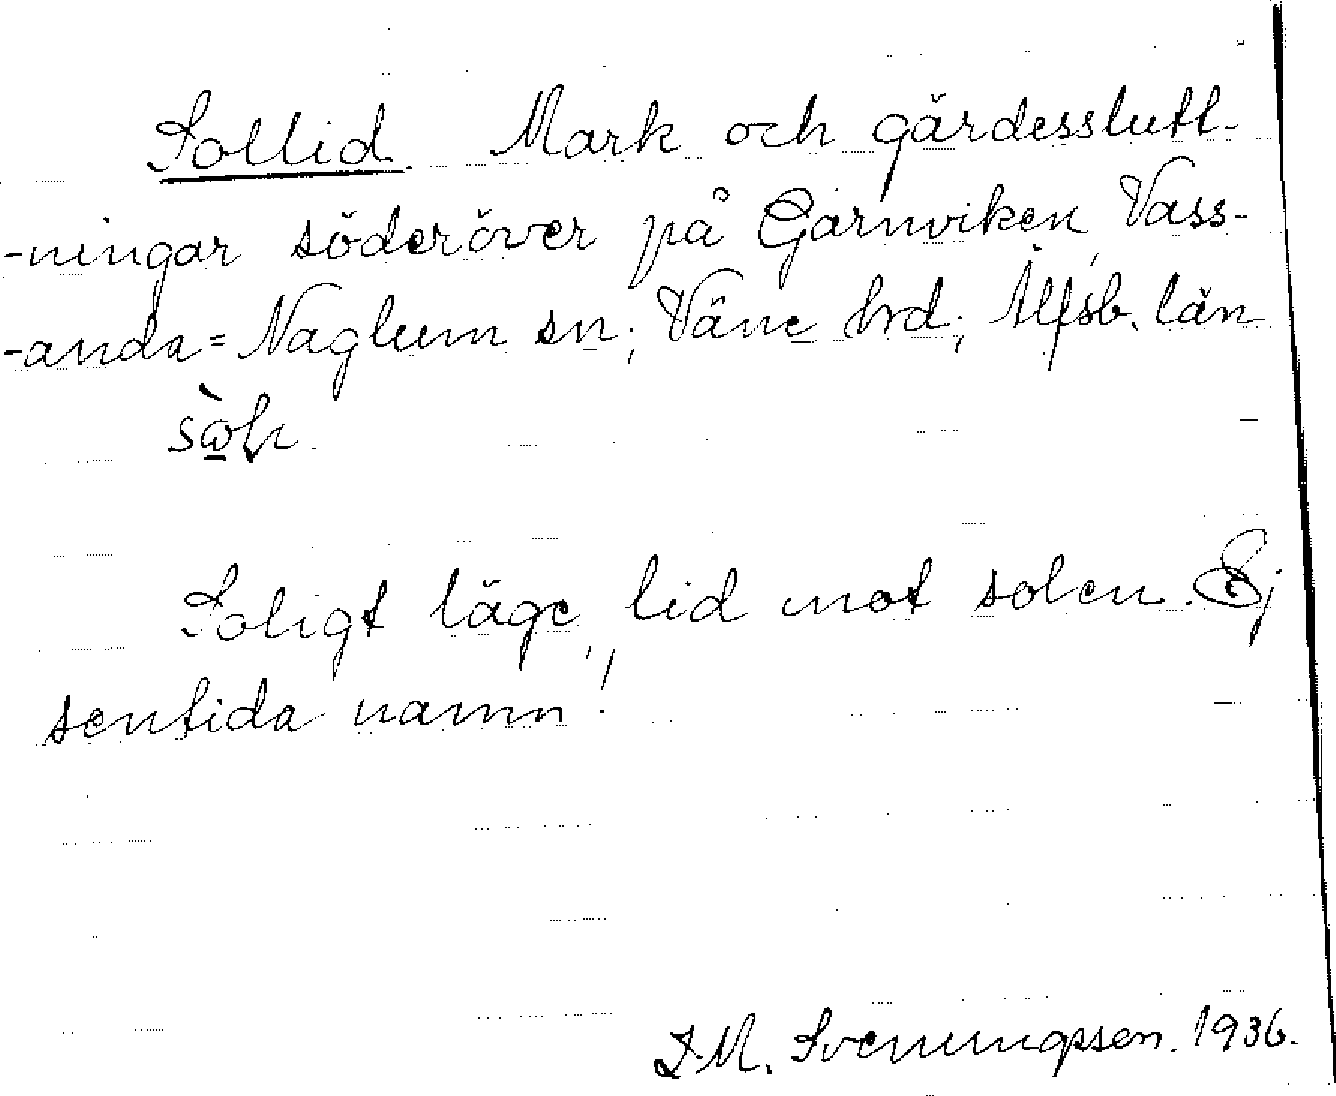 Sollid. Mark och gärdesslutt-
-ningar söderöver på Garnviken, Vass-
-anda=Naglum sn; Väne hrd; Älfsb. län
Soligt läge, lid mot solen. Ej
sentida namn!
I.M. Svenningsson. 1936.